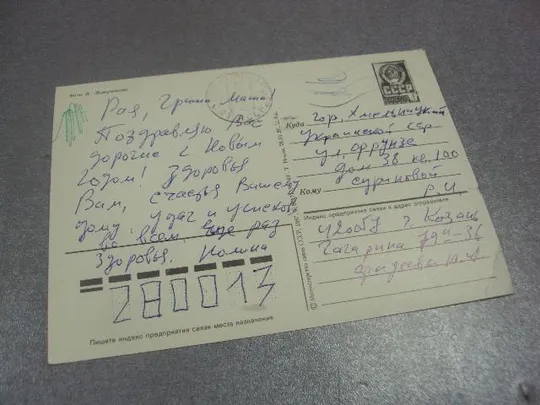 Рая, Гриша, Маша!
Поздравляю Вас
дорогие с Новым
годом! Здоровья
Вам, счастья Вашему
дому, удач и успехов
во всем. Еще раз
Здоровья. Полина
280013
Пишите индекс предприятия связи места назначения
СССР
Куда гор. Хмельницкий
Украинской ССР
ул. Фрунзе
дом 38 кв. 100
Кому
Р. И.
Индекс предприятия связи и адрес отправителя
г. Казань
Гагарина